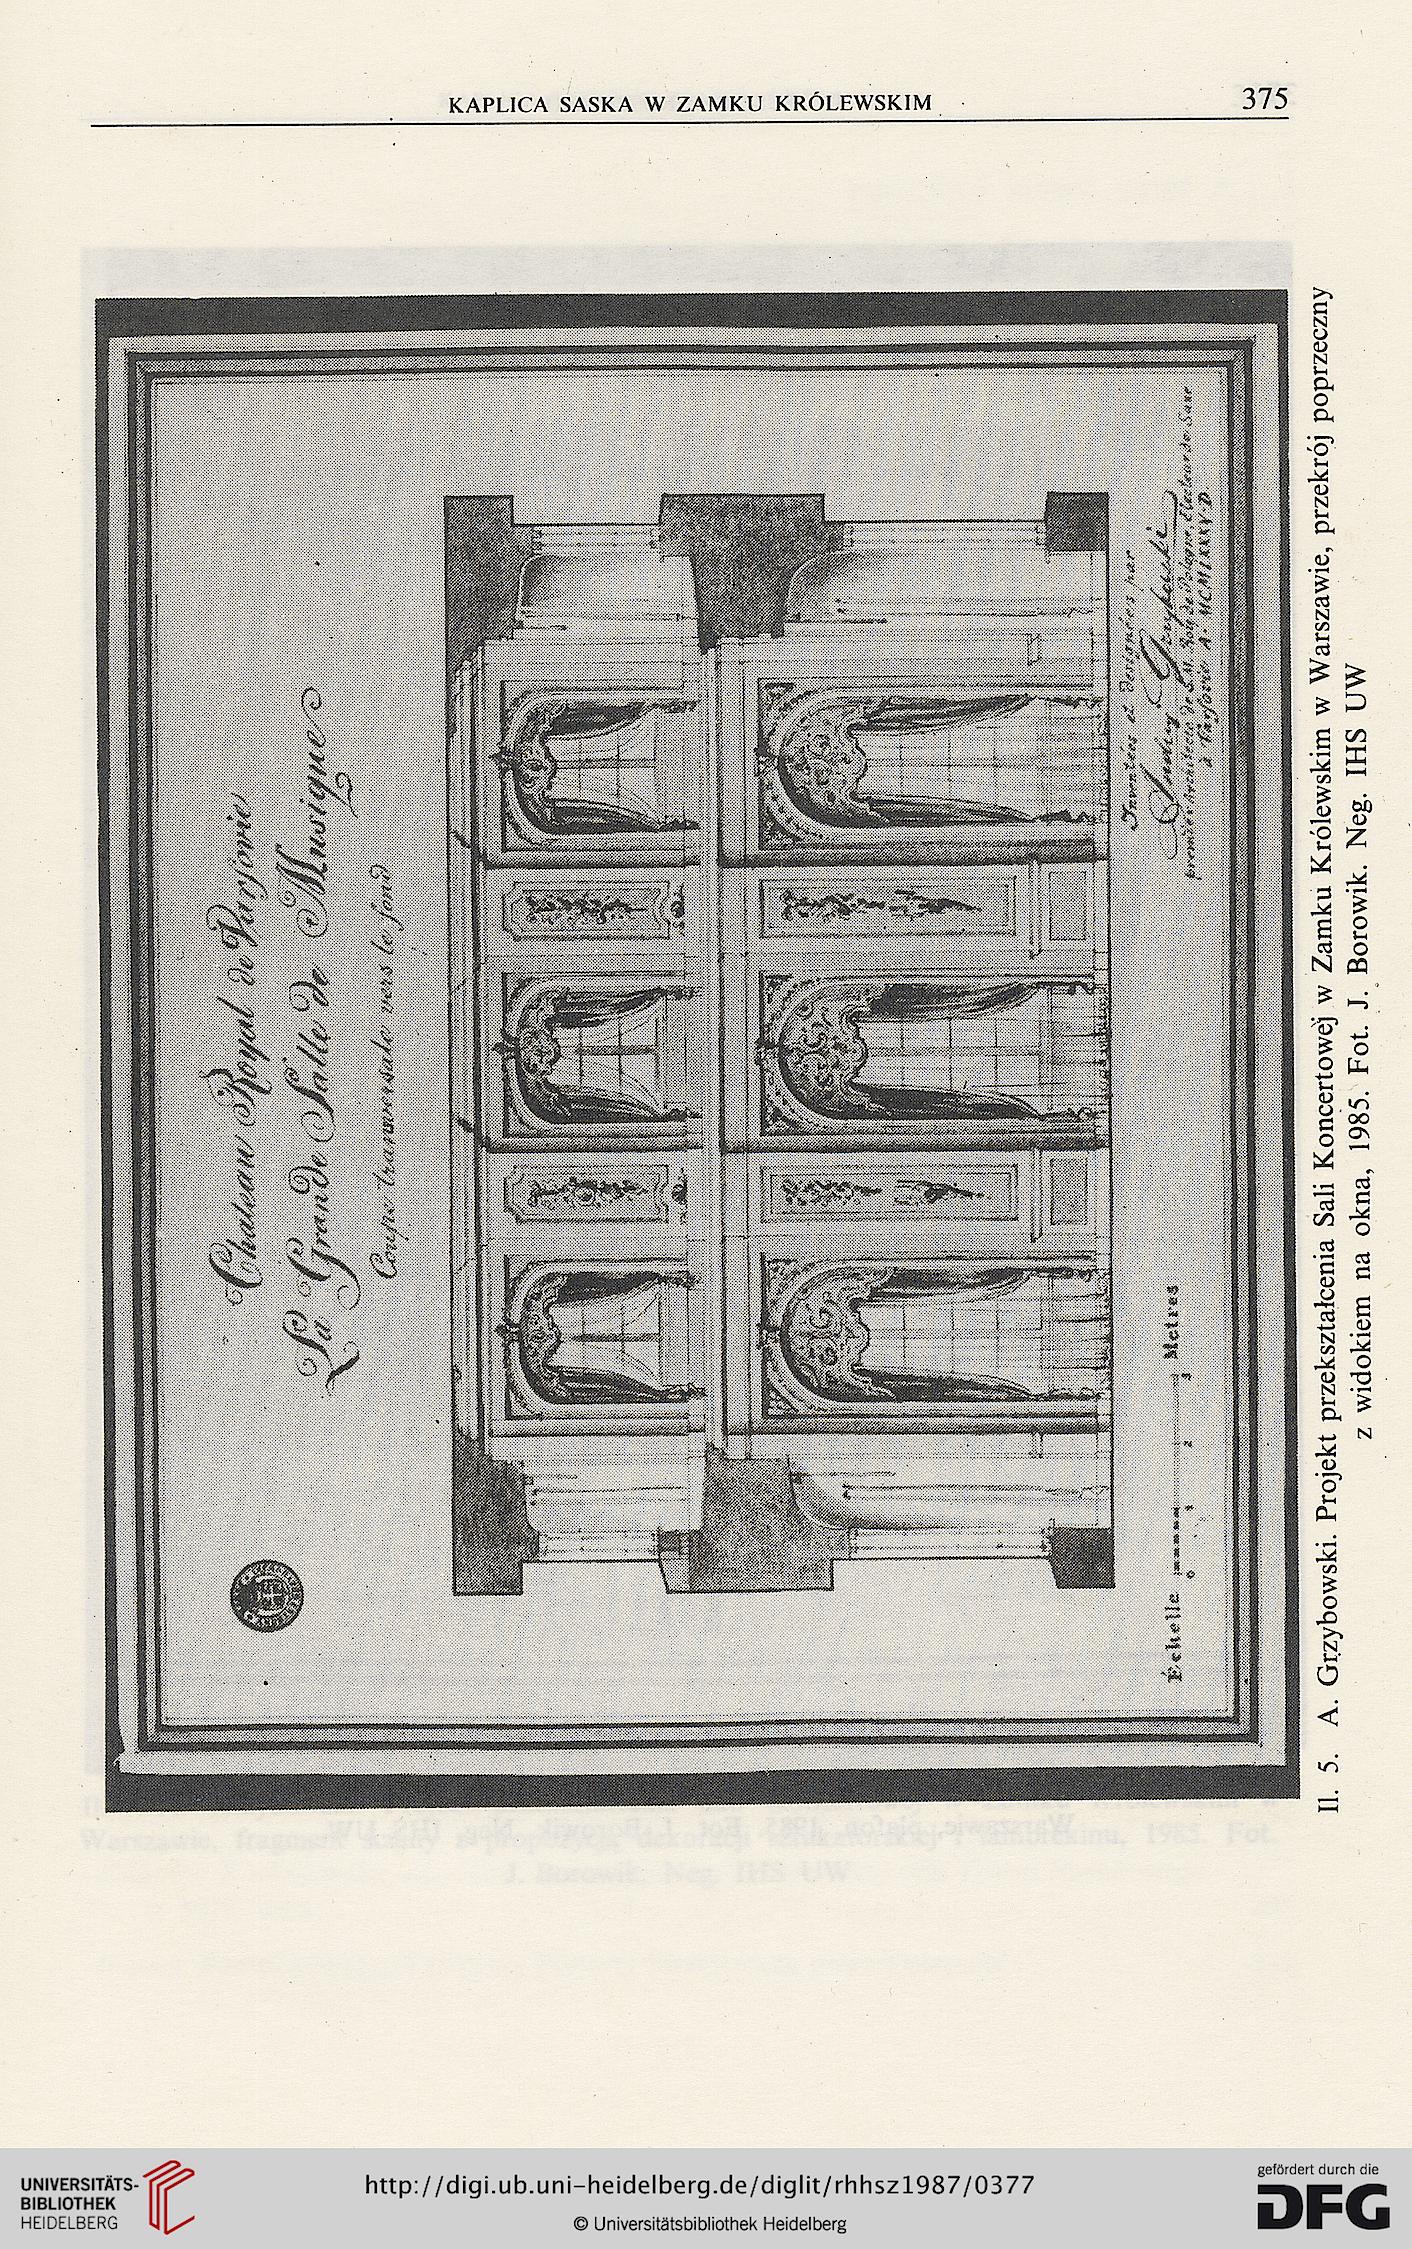 KAPLICA SASKA W ZAMKU KRÓLEWSKIM
375
Chateau Royal de Varsovie
La Grande Salle de Musique
Coupe transversale vers le fond
Inventées et dessignées par
Andrzej Grzybowski
premier architecte de S. M. Roy de Pologne, Electeur de Saxe
à Varsovie A.
Échelle 0 1 2 3 Metres
Il. 5. A. Grzybowski. Projekt przekształcenia Sali Koncertowej w Zamku Królewskim w Warszawie, przekrój poprzeczny
z widokiem na okna, 1985. Fot. J. Borowik. Neg. IHS UW
UNIVERSITÄTS-
BIBLIOTHEK
HEIDELBERG
http://digi.ub.uni-heidelberg.de/diglit/rhhsz1987/0377
© Universitätsbibliothek Heidelberg
gefördert durch die
DFG